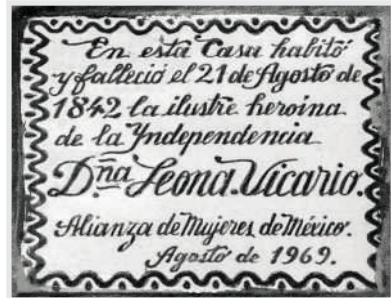 En esta Casa habitó
y falleció el 21 de Agosto de
1842 la ilustre heroina
de la Yndependencia
Dña Leona Vicario.
Alianza de Mujeres de México.
Agosto de 1969.